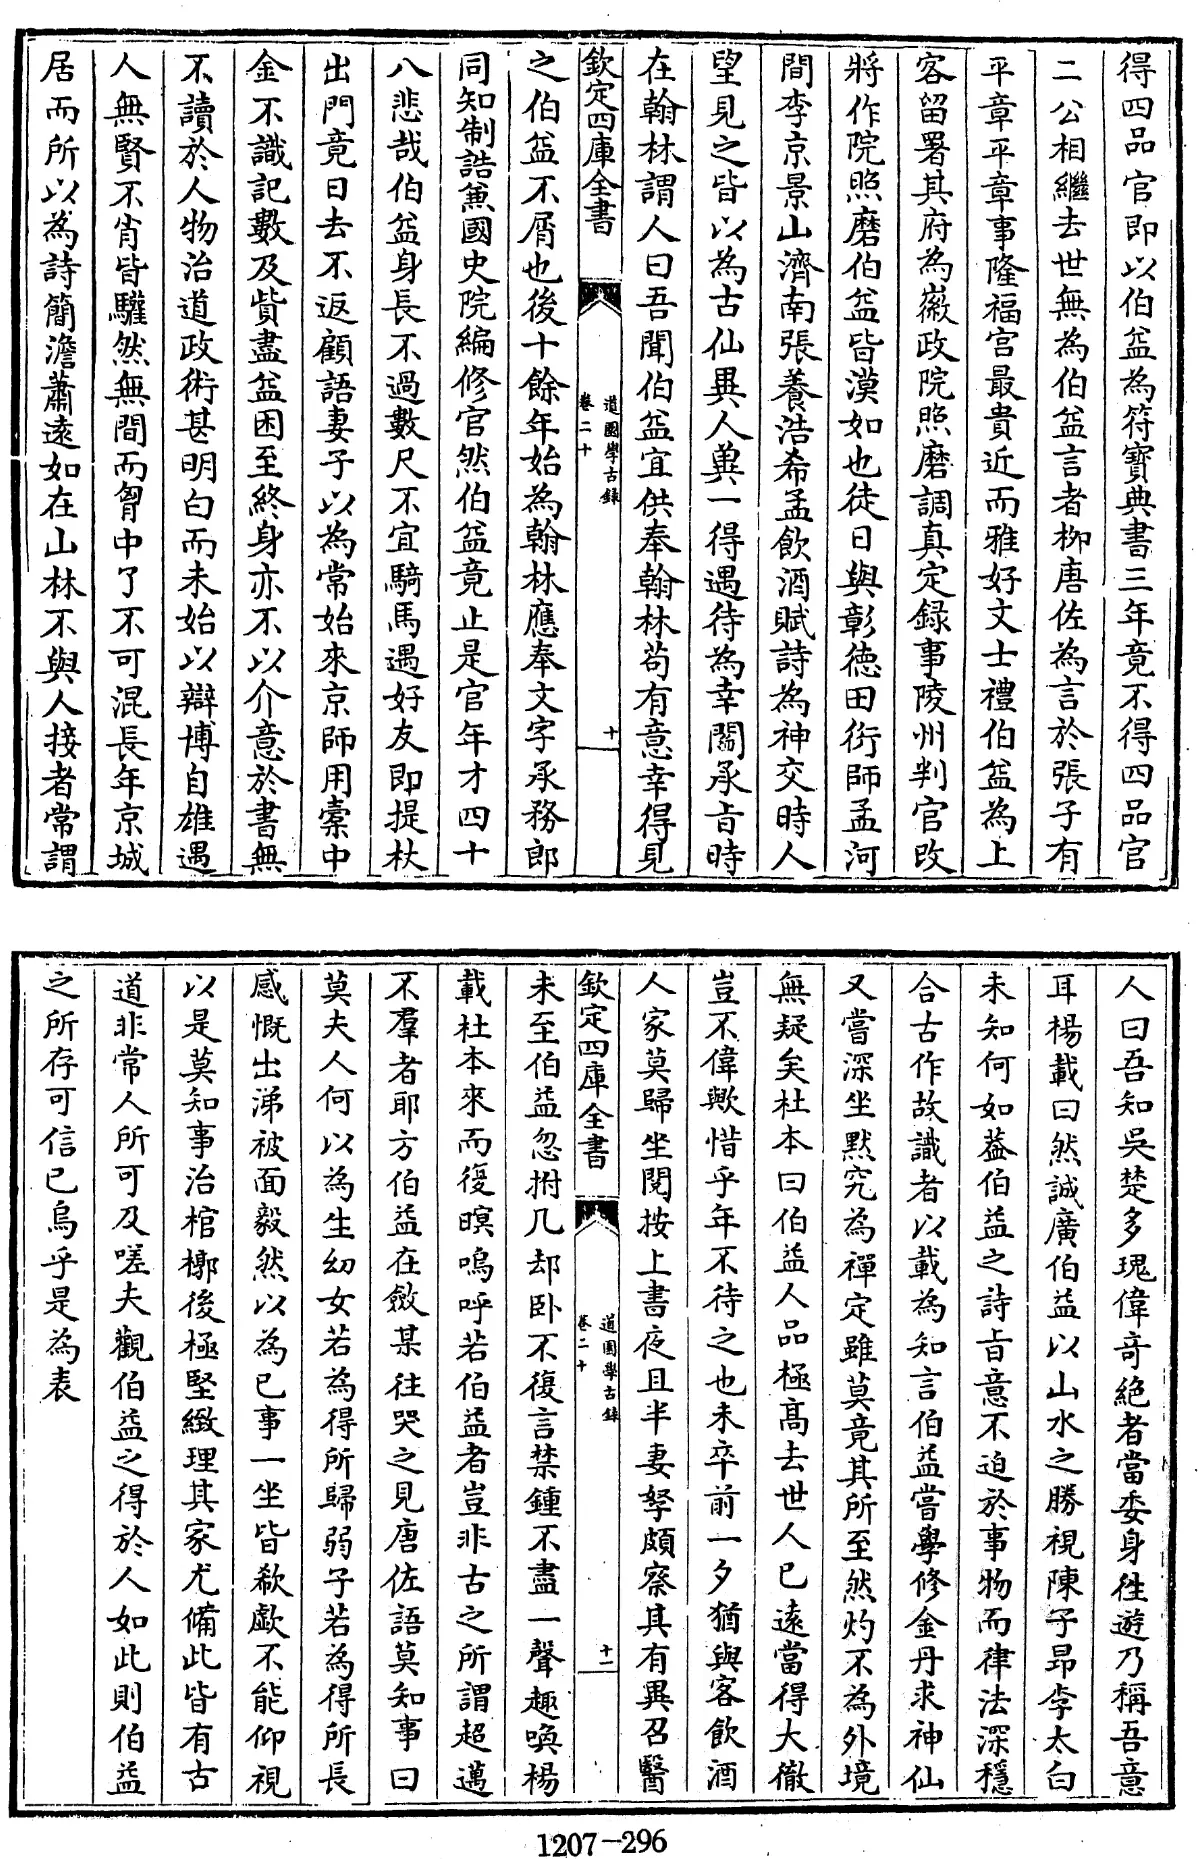 得四品官即以伯益為符寶典書三年竟不得四品官
二公相繼去世無為伯益言者柳唐佐為言於張子有
平章平章事隆福宫最貴近而雅好文士禮伯益為上
客留署其府為徽政院照磨調真定録事陵州判官改
將作院照磨伯益皆漠如也徒日與彰徳田衍師孟河
間李京景山濟南張養浩希孟飲酒賦詩為神交時人
望見之皆以為古仙異人冀一得遇待為幸閻承㫖時
在翰林謂人曰吾聞伯益宜供奉翰林茍有意幸得見
欽定四庫全書
道園學古録
卷二十
十
之伯益不屑也後十餘年始為翰林應奉文字承務郎
同知制誥兼國史院編修官然伯益竟止是官年才四十
八悲哉伯益身長不過數尺不宜騎馬遇好友即提杖
出門竟日去不返顧語妻子以為常始來京師用槖中
金不識記數及貲盡益困至終身亦不以介意於書無
不讀於人物治道政術甚明白而未始以辯博自雄遇
人無賢不肖皆驩然無間而胷中了不可混長年京城
居而所以為詩簡澹蕭逺如在山林不與人接者常謂
人曰吾知吳楚多瑰偉竒絶者當委身徃遊乃稱吾意
耳楊載曰然誠廣伯益以山水之勝視陳子昻李太白
未知何如葢伯益之詩㫖意不迫於事物而律法深穩
合古作故識者以載為知言伯益嘗學修金丹求神仙
又嘗深坐黙究為禪定雖莫竟其所至然灼不為外境
無疑矣杜本曰伯益人品極髙去世人已逺當得大徹
豈不偉歟惜乎年不待之也未卒前一夕猶與客飲酒
人家莫歸坐閲按上書夜且半妻孥頗察其有異召醫
欽定四庫全書
道園學古録
卷二十
十一
未至伯益忽拊几却卧不復言禁鍾不盡一聲趣喚楊
載杜本來而復暝嗚呼若伯益者豈非古之所謂超邁
不羣者耶方伯益在斂某往哭之見唐佐語莫知事曰
莫夫人何以為生㓜女若為得所歸弱子若為得所長
感慨出涕被面毅然以為已事一坐皆欷歔不能仰視
以是莫知事治棺槨後極堅緻理其家尤備此皆有古
道非常人所可及嗟夫觀伯益之得於人如此則伯益
之所存可信已烏乎是為表
1207-296